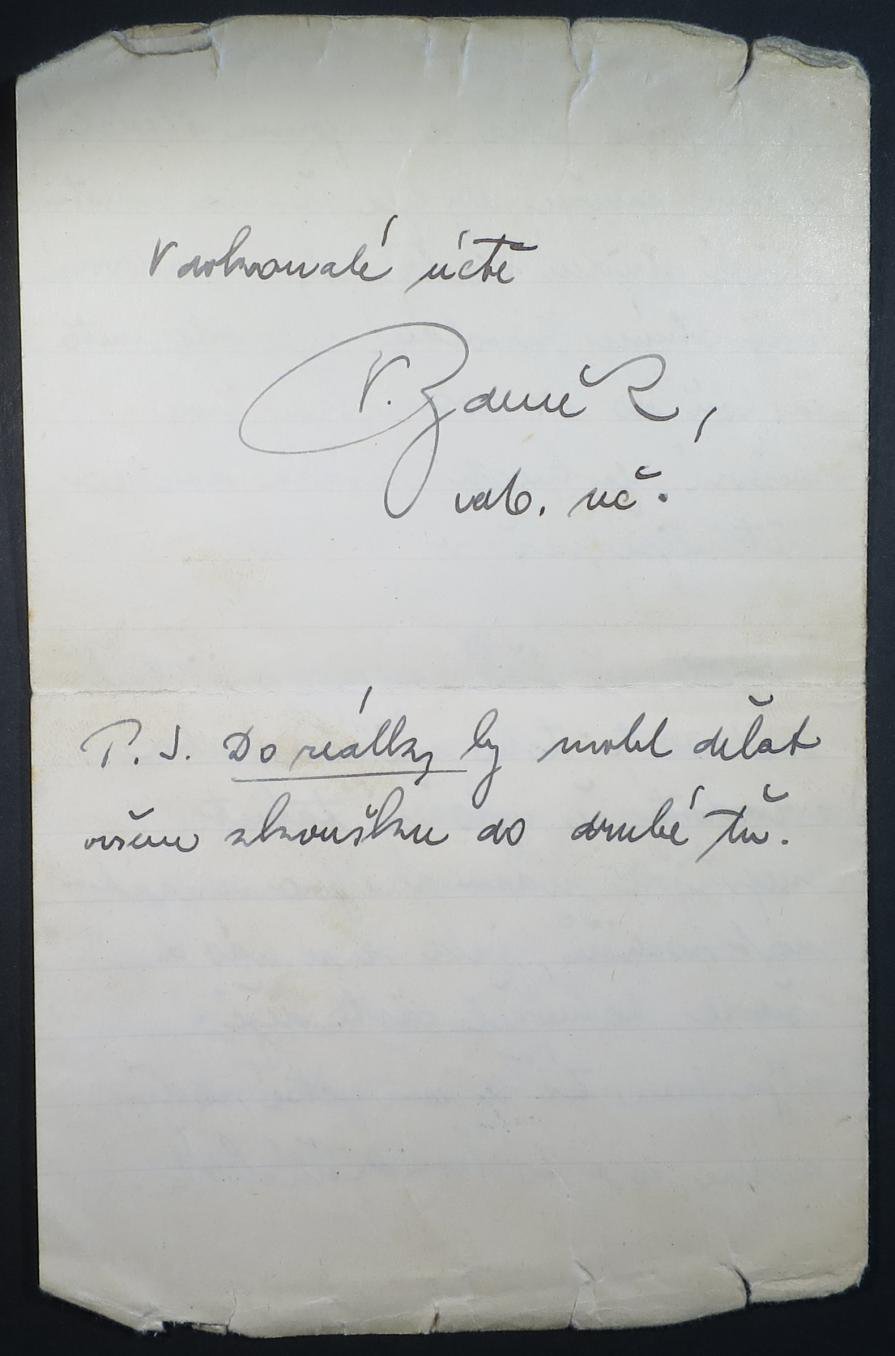 V dokonalé úctě
V. Zdeněk,
odb. uč.
P. S. Do reálky by mohl dělat
ovšem zkoušku do druhé tř.